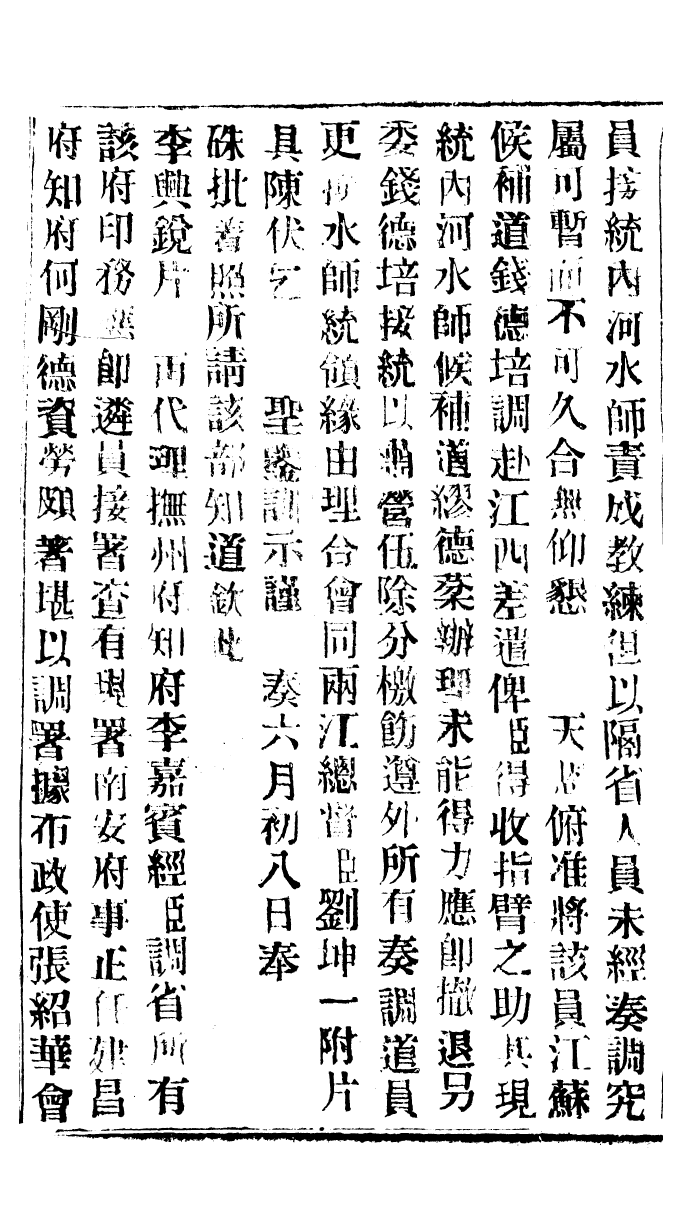 員接統內河水師責成教練但以隔省人員未經奏調究
屬可暫而不可久合無仰懇　　天恩俯准將該員江蘇
候補道錢德培調赴江西差遣俾臣得收指臂之助其現
統內河水師候補道繆德棻辦理未能得力應即撤退另
委錢德培接統以肅營伍除分檄飭遵外所有奏調道員
更換水師統領緣由理合會同兩江總督臣劉坤一附片
具陳伏乞　　聖鑒訓示謹　　奏六月初八日奉
硃批著照所請該部知道欽此
李興銳片　　再代理撫州府知府李嘉賓經臣調省所有
該府印務應即遴員接署查有現署南安府事正任建昌
府知府何剛德資勞頗著堪以調署據布政使張紹華會